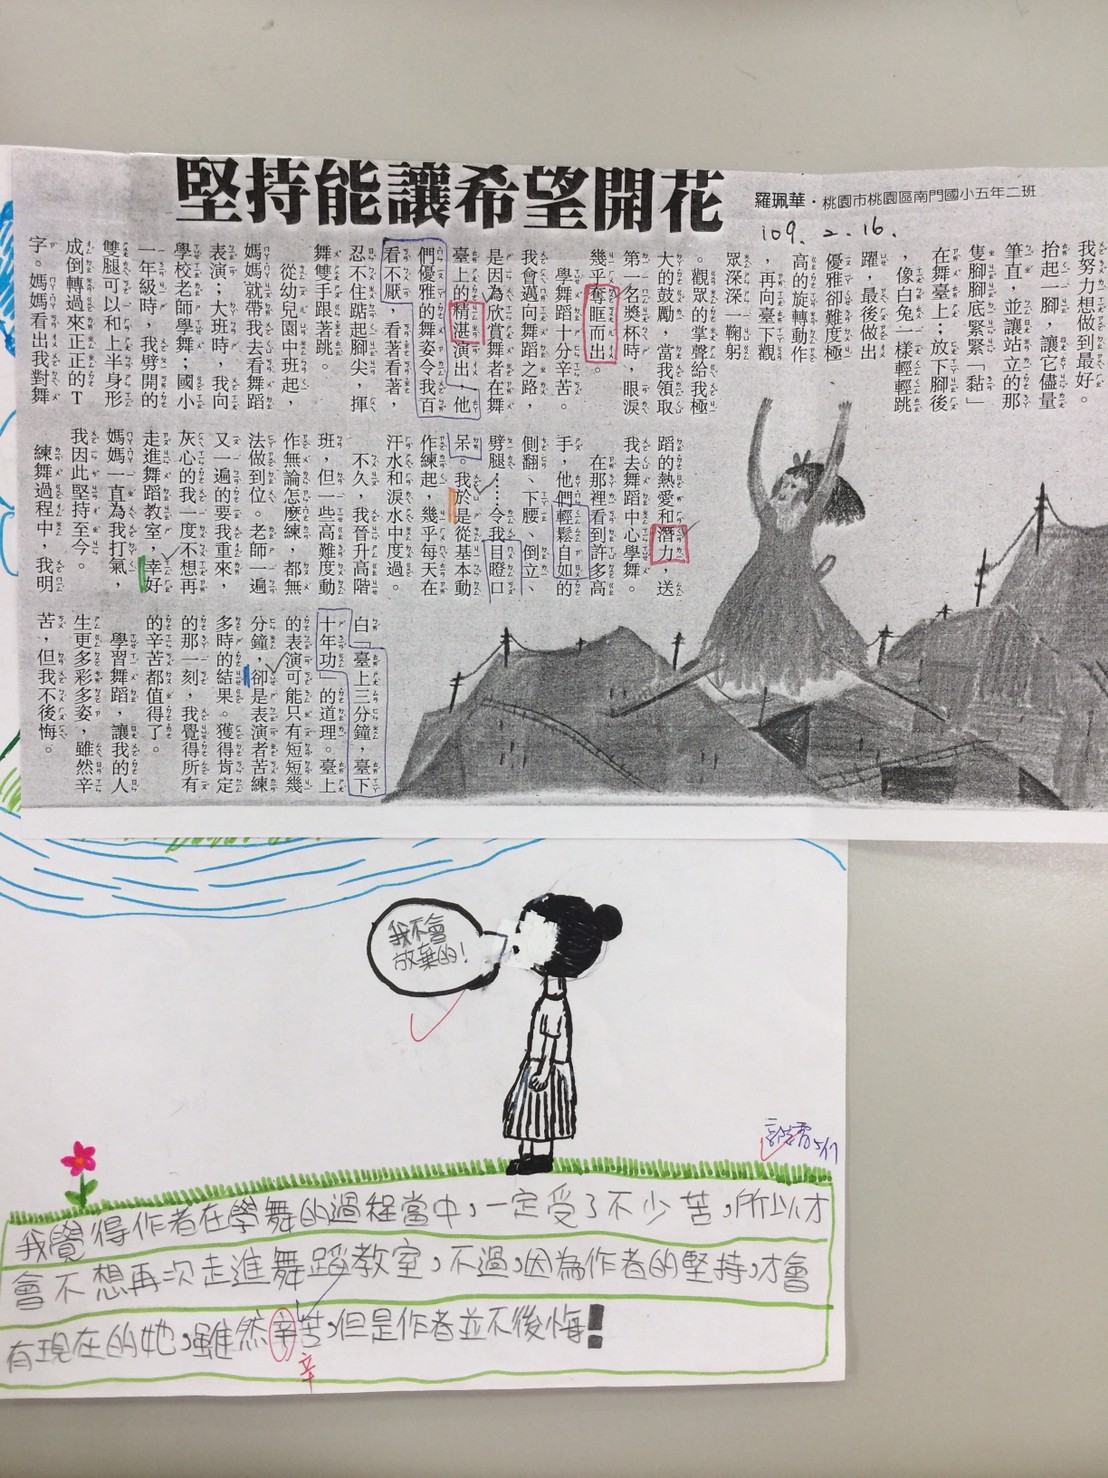 堅持能讓希望開花
羅珮華・桃園市桃園區南門國小五年二班
109. 2. 16.
我努力想做到最好。
抬起一腳，讓它儘量
筆直，並讓站立的那
隻腳腳底緊緊「黏」
在舞臺上；放下腳後
，像白兔一樣輕輕跳
躍，最後做出
優雅卻難度極
高的旋轉動作
，再向臺下觀
眾深深一鞠躬
。觀眾的掌聲給我極
大的鼓勵，當我領取
第一名獎杯時，眼淚
幾乎奪眶而出。
學舞蹈十分辛苦。
我會邁向舞蹈之路，
是因為欣賞舞者在舞
臺上的精湛演出，他
們優雅的舞姿令我百
看不厭，看著看著，
忍不住踮起腳尖，揮
舞雙手跟著跳。
從幼兒園中班起，
媽媽就帶我去看舞蹈
表演；大班時，我向
學校老師學舞；國小
一年級時，我劈開的
雙腿可以和上半身形
成倒轉過來正正的T
字。媽媽看出我對舞
蹈的熱愛和潛力，送
我去舞蹈中心學舞。
在那裡看到許多高
手，他們輕鬆自如的
側翻、下腰、倒立、
劈腿……令我目瞪口
呆。我於是從基本動
作練起，幾乎每天在
汗水和淚水中度過。
不久，我晉升高階
班，但一些高難度動
作無論怎麼練，都無
法做到位。老師一遍
又一遍的要我重來，
灰心的我一度不想再
走進舞蹈教室，幸好
媽媽一直為我打氣，
我因此堅持至今。
練舞過程中，我明
白「臺上三分鐘，臺下
十年功」的道理。臺上
的表演可能只有短短幾
分鐘，卻是表演者苦練
多時的結果。獲得肯定
的那一刻，我覺得所有
的辛苦都值得了。
學習舞蹈，讓我的人
生更多彩多姿，雖然辛
苦，但我不後悔。
我不會
放棄的！
5/17
我覺得作者在學舞的過程當中，一定受了不少苦，所以才
會不想再次走進舞蹈教室，不過，因為作者的堅持，才會
有現在的她，雖然辛苦，但是作者並不後悔！
辛